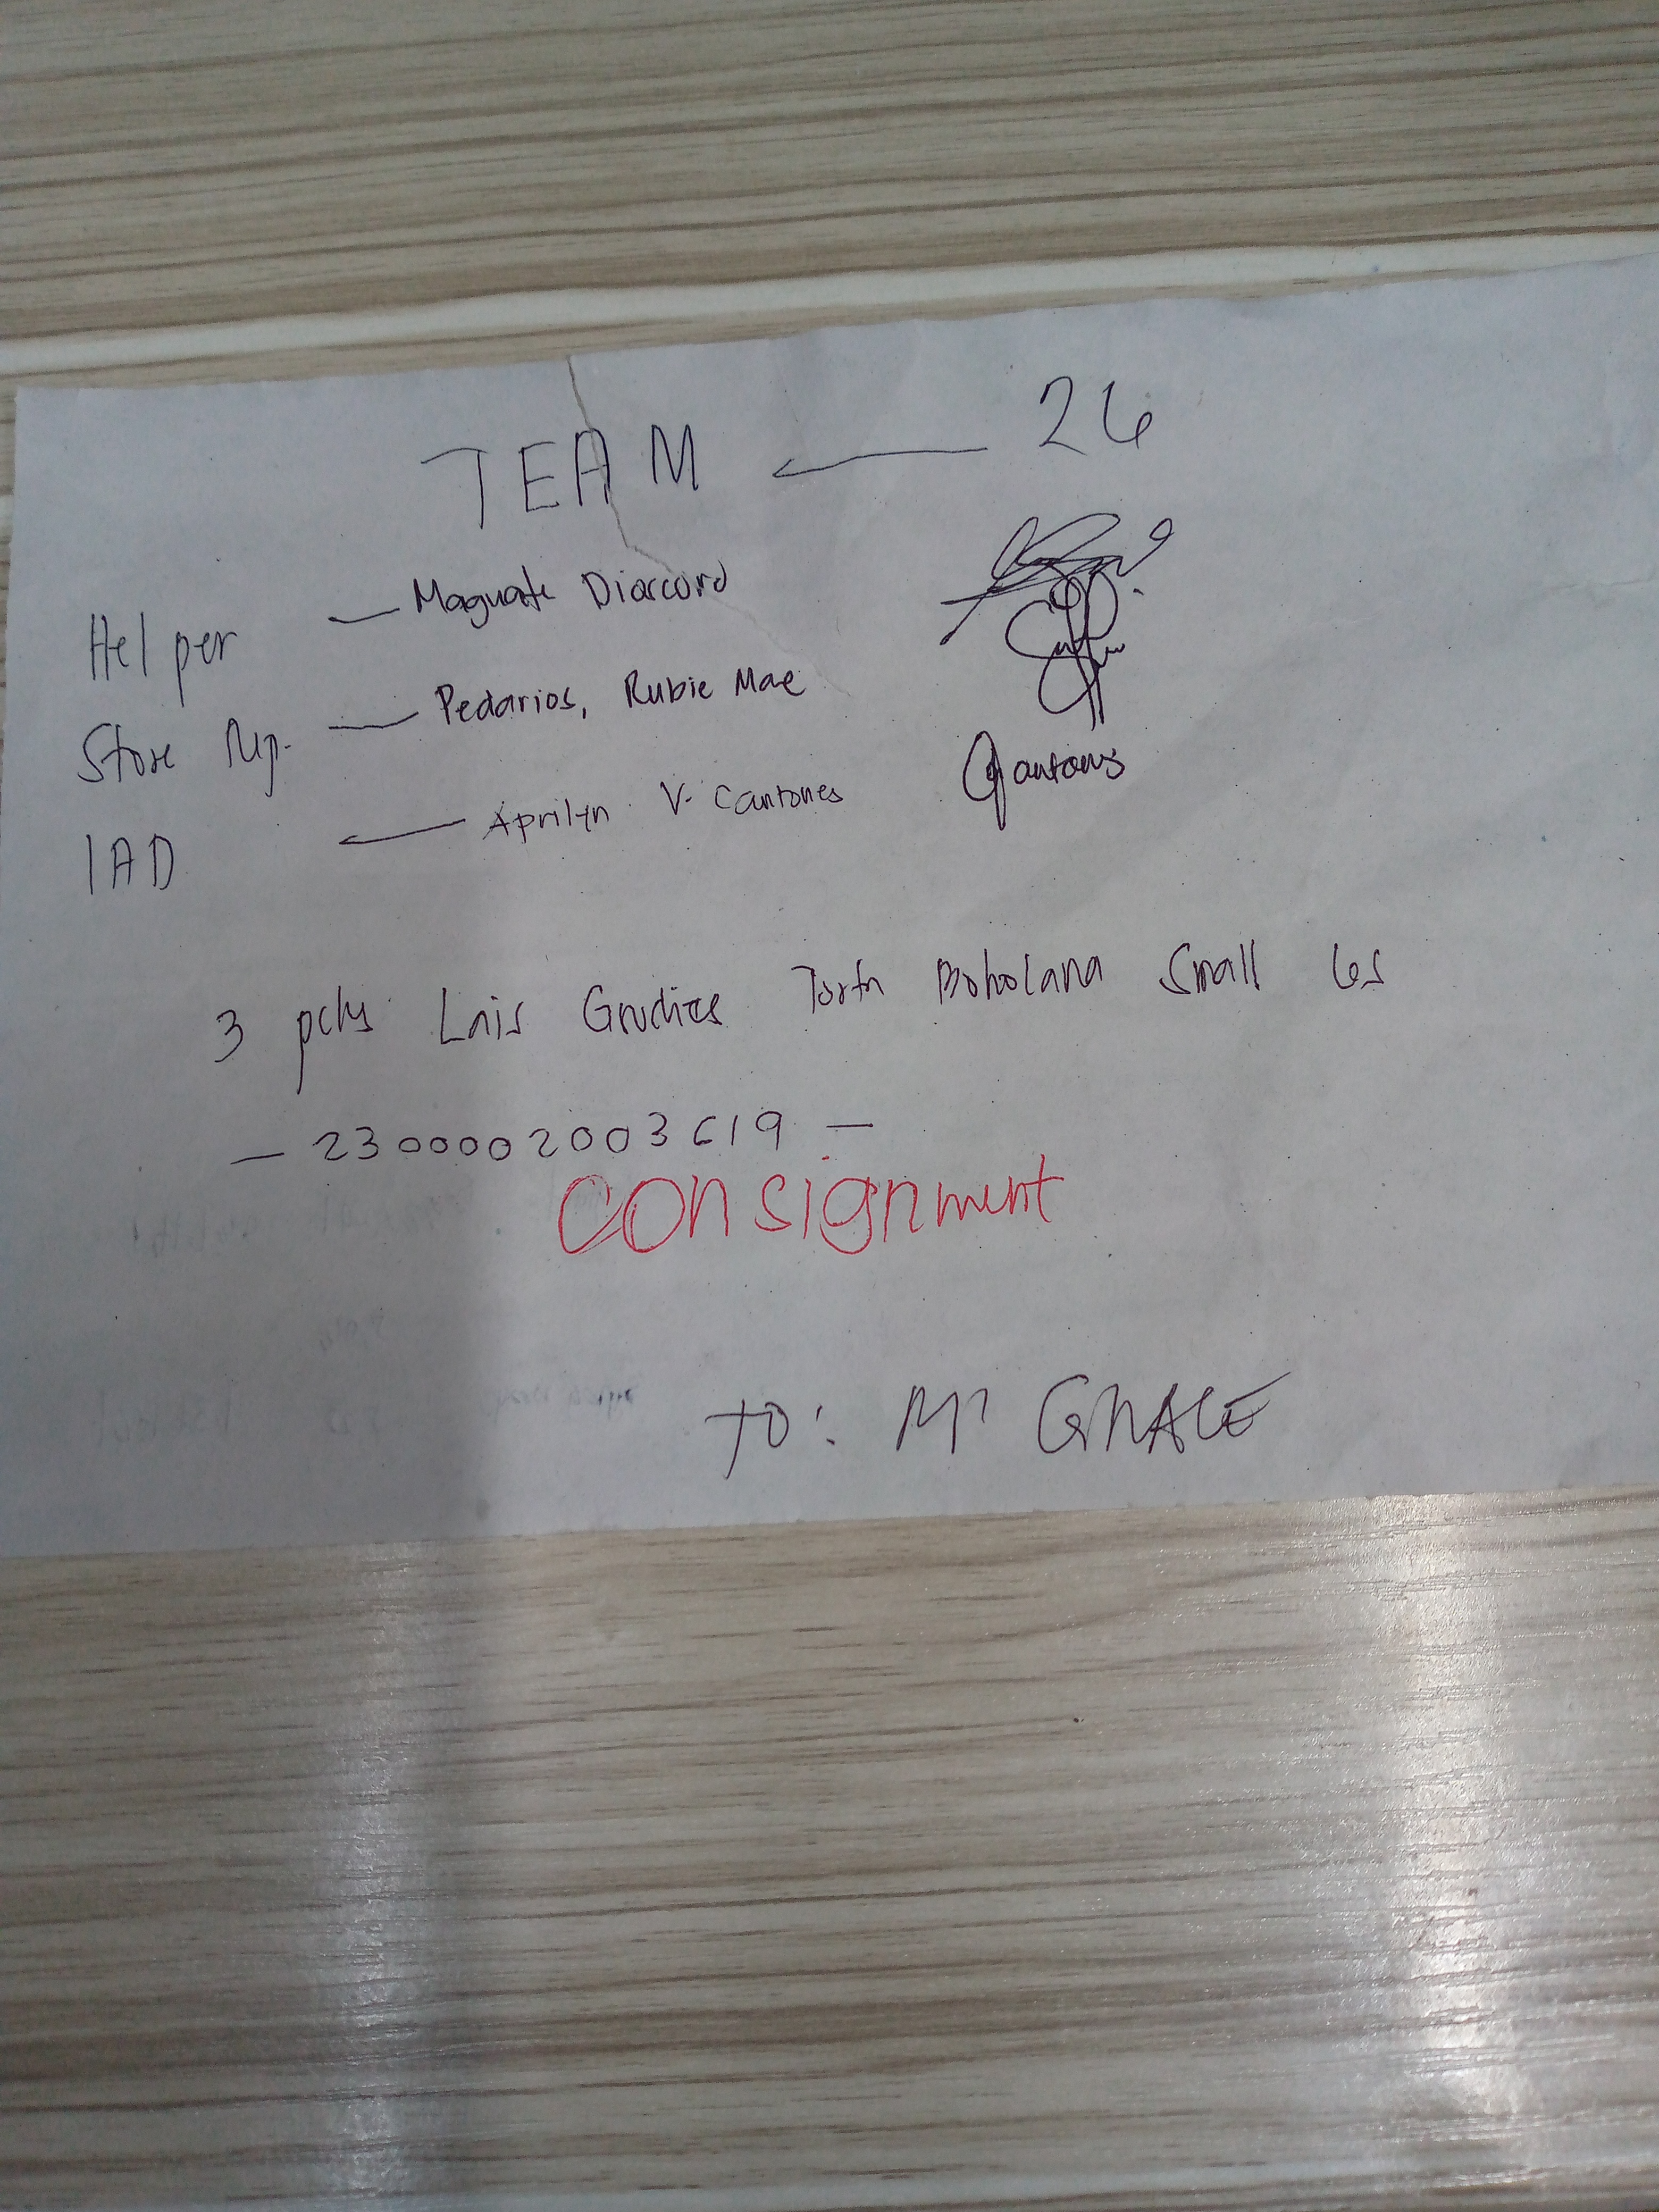 TEAM — 26
Helper — Maguate Diaccord
Store Rep. — Pedarios, Rubie Mae
IAD — Aprilyn V. Cantones
3 pcks Lais Goodies Torta Boholana Small 6s
— 2300002003619 —
consignment
TO: M' GRACE